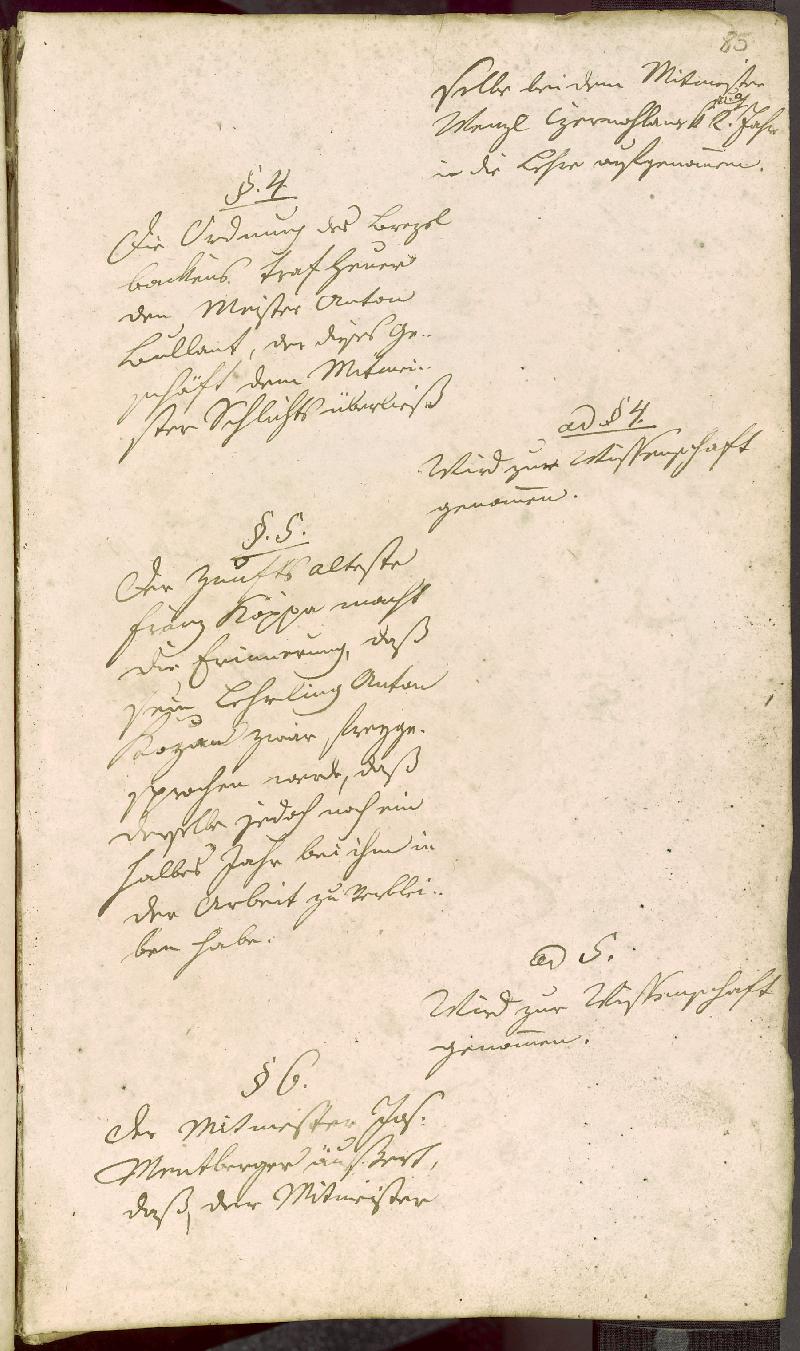 85
selbe bei dem Mitmeister
Wenzl Czermohlansk 2. Jahr
in die Lehre aufgenommen.
§. 4.
Die Ordnung des Brezel
backens traf heuer
den Meister Anton
Bullant, der dieses Ge-
schäft dem Mitmei-
ster Schlichts überließ
ad § 4.
Wird zur Wissenschaft
genommen.
§. 5.
Der Zunftsälteste
Franz Köppa macht
die Erinnerung, daß
sein Lehrling Anton
Kozan zwar freyge-
sprochen werde, daß
derselbe jedoch noch ein
halbes Jahr bei ihm in
der Arbeit zu verblei-
ben habe.
ad 5.
Wird zur Wissenschaft
genommen.
§ 6.
Der Mitmeister Jos.
Mentberger äußert,
daß der Mitmeister